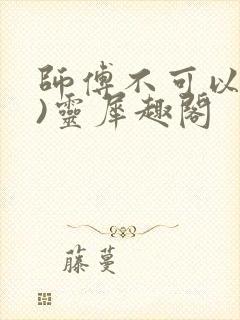 師傅不可以
)靈犀趣閣
藤蔓